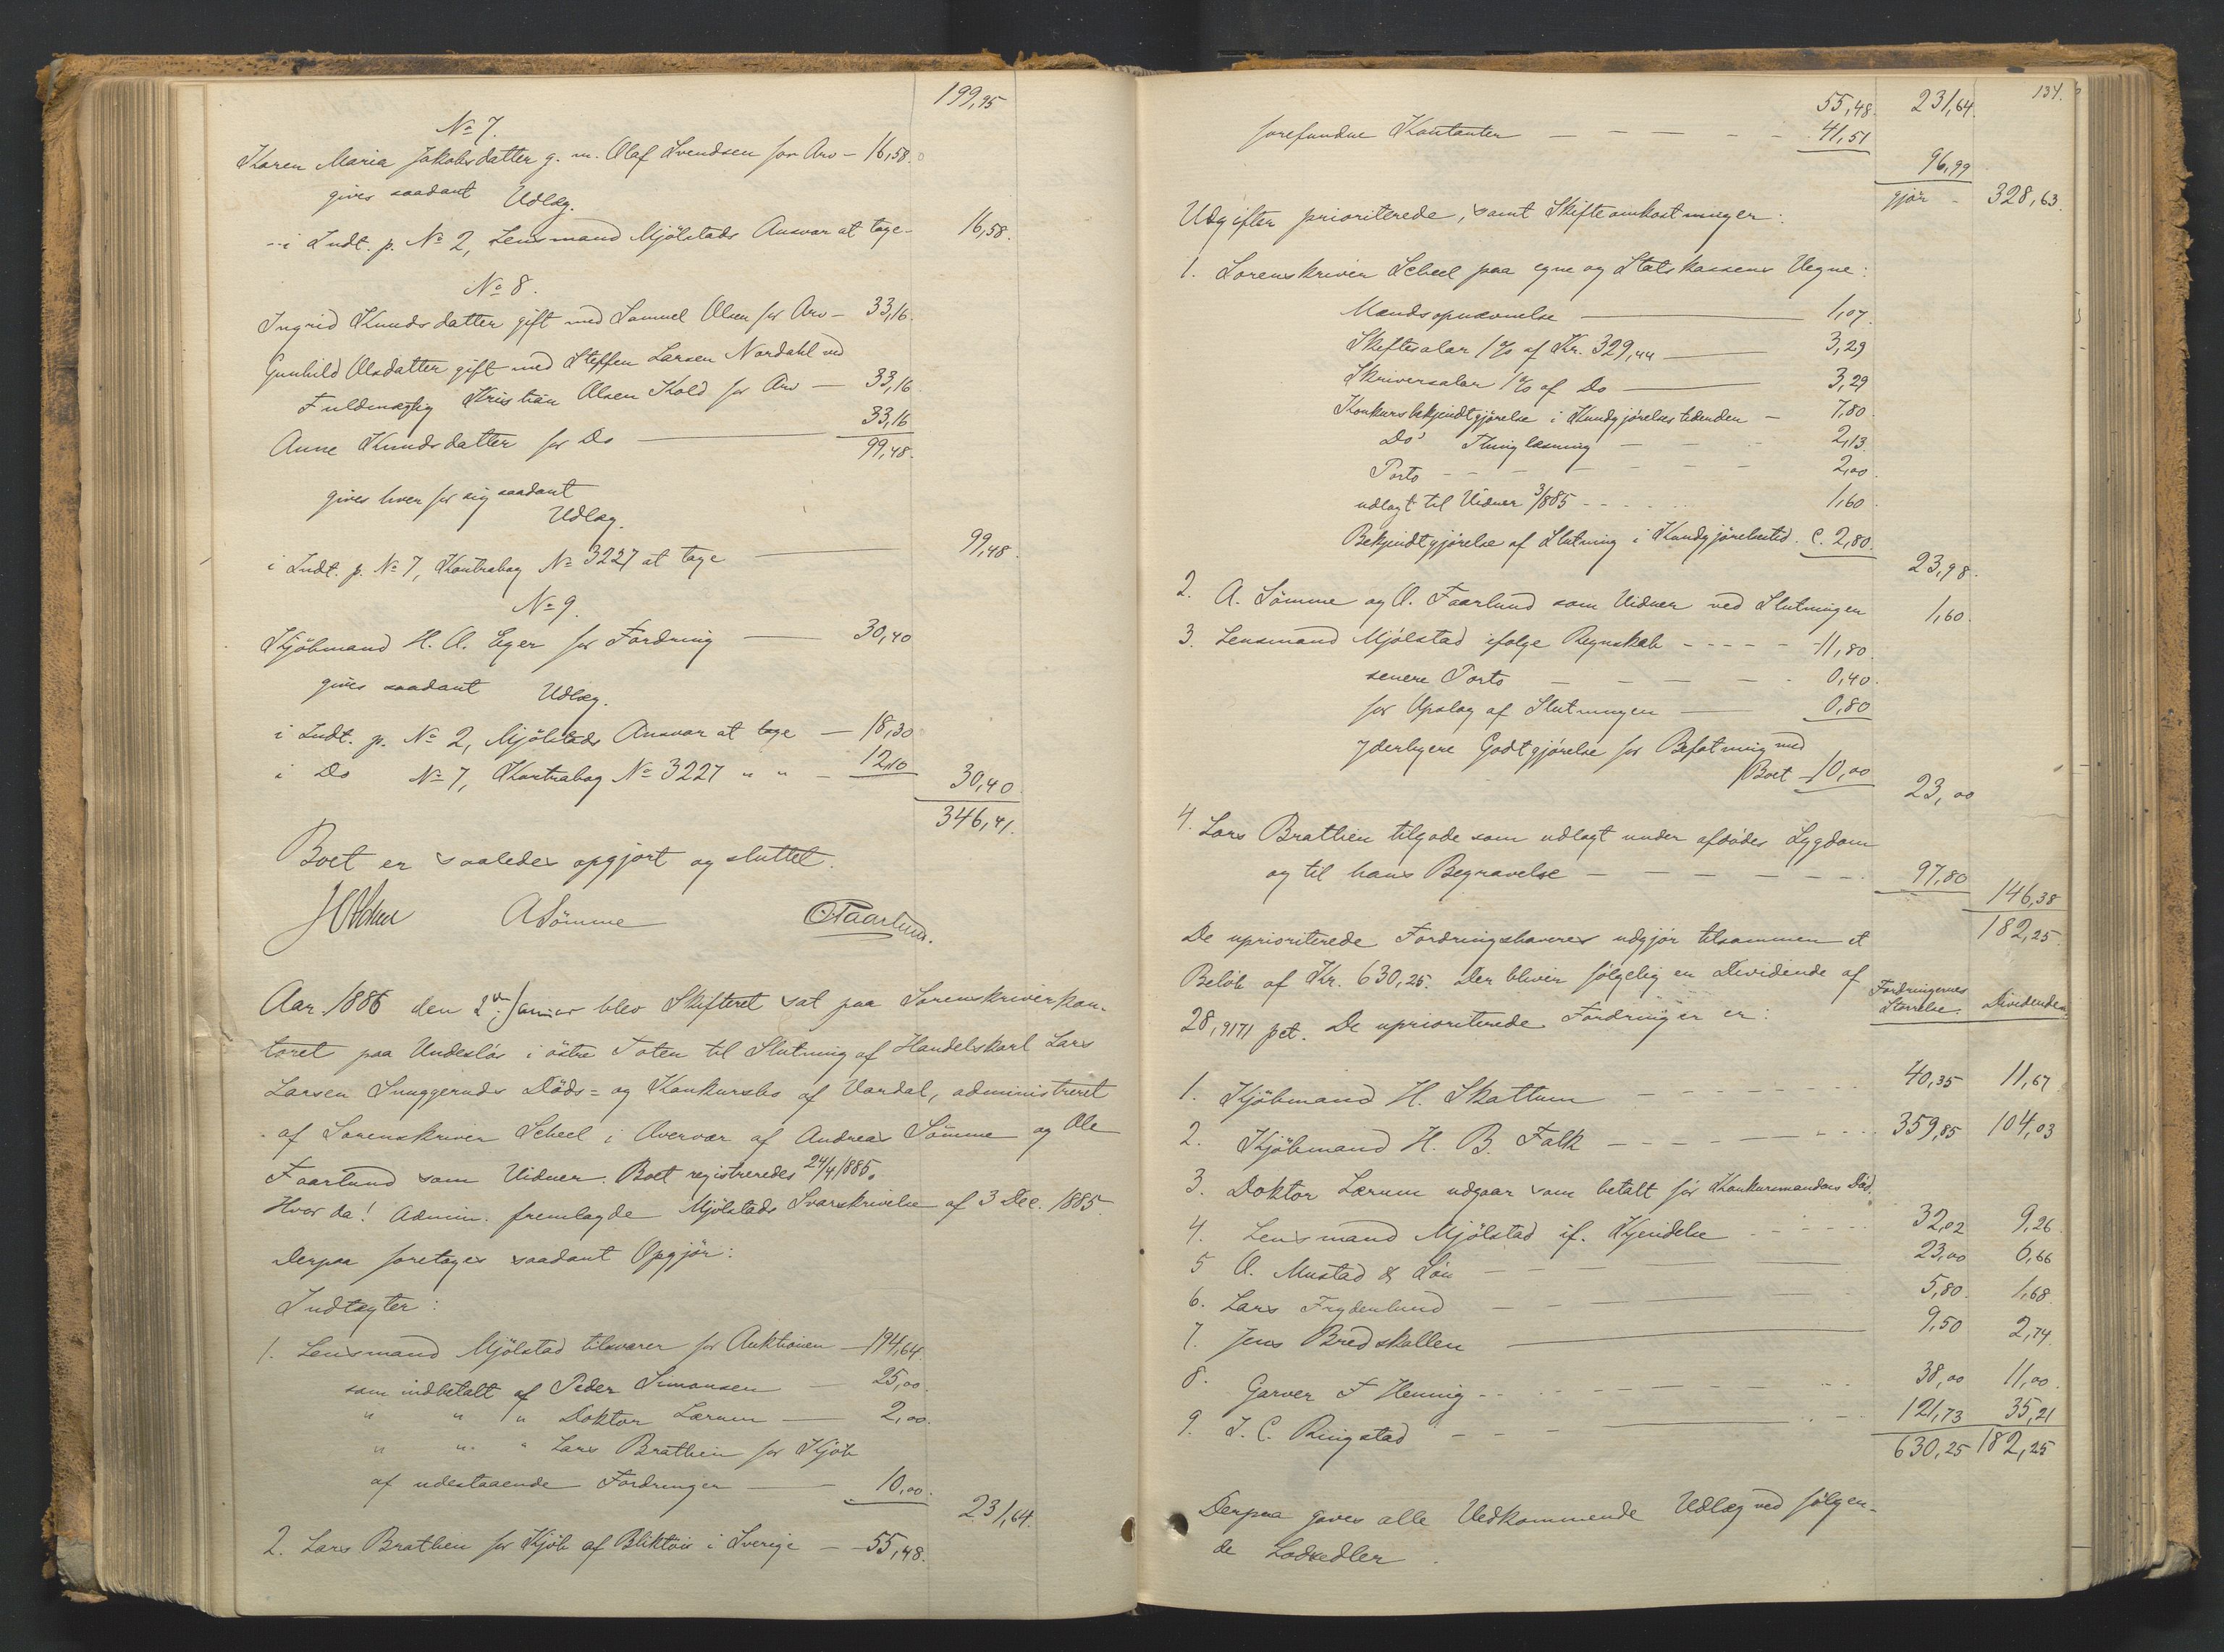 199,95
No 7.
Karen Maria Jakobsdatter g. m. Olaf Svendsen for Arv - 16,58.
gives saadant Udlæg.
i Indt. p. No 2, Lensmand Mjölstads Ansvar at tage - 16,58.
No 8.
Ingrid Knudsdatter gift med Samuel Olsen for Arv - 33,16.
Gunhild Olsdatter gift med Steffen Larsen Nordahl ved
Fuldmægtig Kristian Olsen Kold for Arv - 33,16.
Anne Knudsdatter for Do - 33,16
99,48.
gives hver for sig saadant
Udlæg.
i Indt. p. No 7, Kontrabog No 3227 at tage 99,48.
No 9.
Kjöbmand H. A. Eger for Fordring - 30,40
gives saadant Udlæg.
i Indt. p. No 2, Mjölstads Ansvar at tage - 18,30
i Do No 7, Kontrabog No 3227 " " - 12,10
30,40.
346,41.
Boet er saaledes opgjort og sluttet.
ASömme OFaarlund.
Aar 1886 den 2den Januar blev Skifteret sat paa Sorenskriverkon-
toret paa Undeslös i östre Toten til Slutning af Handelskarl Lars
Larsen Snuggeruds Döds= og Konkursbo af Vardal, administreret
af Sorenskriver Scheel i Overvær af Andreas Sömme og Ole
Faarlund som Vidner. Boet registreredes 24/4 1885.
Hvor da! Admin. fremlagde Mjölstads Svarskrivelse af 3 Dec. 1885.
Derpaa foretages saadant Opgjör:
Indtægter:
1. Lensmand Mjölstad tilsvarer for Auktionen - 194,64.
som indbetalt af Peder Simonsen - 25,00.
" " " Doktor Lærum - 2,00.
" " " Lars Brathen for Kjöb
af udestaaende Fordringer - 10,00.
231,64.
2. Lars Brathen for Kjöb af Bliktöi i Sverige - 55,48.
134.
55,48. 231,64.
forefundne Kontanter - 41,51
96,99
gjör - 328,63.
Udgifter prioriterede, samt Skifteomkostninger:
1. Sorenskriver Scheel paa egne og Statskassens Vegne:
Mandsopnævnelse - 1,07.
Skiftesalær 1% af Kr. 329,44 - 3,29
Skriversalær 1% af Do - 3,29
Konkursbekjendtgjörelse i Kundgjörelsestidenden - 7,80.
Do's Thinglæsning - 2,13.
Porto - 2,00.
udlagt til Vidner 3/885 - 1,60.
Bekjendtgjörelse af Slutning i Kundgjörelsestid. c. 2,80.
23,98.
2. A. Sömme og O. Faarlund som Vidner ved Slutningen 1,60.
3. Lensmand Mjölstad ifölge Regnskab - 11,80.
senere Porto - 0,40.
for Opslag af Slutningen - 0,80
Yderligere Godtgjörelse for Befatning med
Boet - 10,00
23,00
4. Lars Brathen tilgode som udlagt under afdödes Sygdom
og til hans Begravelse - 97,80
146,38
182,25.
De uprioriterede Fordringshaveres udgjör tilsammen et
Belöb af Kr. 630,25. Der bliver fölgelig en Dividende af
28,9171 pct. De uprioriterede Fordringer er:
Fordringernes Störrelse. Dividenden.
1. Kjöbmand H. Skattum - 40,35 11,67
2. Kjöbmand H. B. Falk - 359,85 104,03
3. Doktor Lærum udgaar som betalt för Konkursmandens Död.
4. Lensmand Mjölstad if. Kjendelse - 32,02 9,26.
5 O. Mustad & Sön - 23,00 6,66
6. Lars Frydenlund - 5,80. 1,68.
7. Jens Bredskallen - 9,50 2,74
8. Garver F Hennig - 38,00 11,00.
9. J. C. Ringstad - 121,73 35,21
630,25 182,25
Derpaa gaves alle Vedkommende Udlæg ved fölgen-
de Lodsedler.